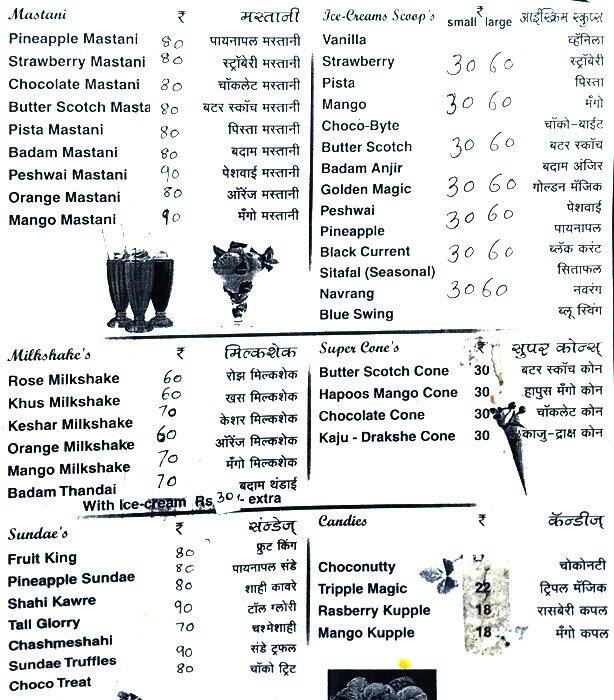 Mastani ₹ मस्तानी
Pineapple Mastani 80 पायनापल मस्तानी
Strawberry Mastani 80 स्ट्रॉबेरी मस्तानी
Chocolate Mastani 80 चॉकलेट मस्तानी
Butter Scotch Masta 80 बटर स्कॉच मस्तानी
Pista Mastani 80 पिस्ता मस्तानी
Badam Mastani 80 बदाम मस्तानी
Peshwai Mastani 90 पेशवाई मस्तानी
Orange Mastani 80 ऑरेंज मस्तानी
Mango Mastani 90 मँगो मस्तानी
Ice-Creams Scoop's small ₹ large आईस्क्रिम स्कुप्स
Vanilla व्हॅनिला
Strawberry 30 60 स्ट्रॉबेरी
Pista पिस्ता
Mango 30 60 मँगो
Choco-Byte चॉको-बाईट
Butter Scotch 30 60 बटर स्कॉच
Badam Anjir बदाम अंजिर
Golden Magic 30 60 गोल्डन मॅजिक
Peshwai 30 60 पेशवाई
Pineapple पायनापल
Black Current 30 60 ब्लॅक करंट
Sitafal (Seasonal) सिताफल
Navrang 30 60 नवरंग
Blue Swing ब्लू स्विंग
Milkshake's ₹ मिल्कशेक
Rose Milkshake 60 रोझ मिल्कशेक
Khus Milkshake 60 खस मिल्कशेक
Keshar Milkshake 70 केशर मिल्कशेक
Orange Milkshake 60 ऑरेंज मिल्कशेक
Mango Milkshake 70 मँगो मिल्कशेक
Badam Thandai 70 बदाम थंडाई
With Ice-cream Rs 30/- extra
Super Cone's ₹ सुपर कोन्स्
Butter Scotch Cone 30 बटर स्कॉच कोन
Hapoos Mango Cone 30 हापुस मँगो कोन
Chocolate Cone 30 चॉकलेट कोन
Kaju - Drakshe Cone 30 काजु-द्राक्ष कोन
Sundae's ₹ संन्डेज्
Fruit King 80 फ्रुट किंग
Pineapple Sundae 80 पायनापल संडे
Shahi Kawre 80 शाही कावरे
Tall Glorry 90 टॉल ग्लोरी
Chashmeshahi 70 चश्मेशाही
Sundae Truffles 90 संडे ट्रफल
Choco Treat 80 चॉको ट्रिट
Candies ₹ कॅन्डीज्
Choconutty चोकोनटी
Tripple Magic 22 ट्रिपल मॅजिक
Rasberry Kupple 18 रासबेरी कपल
Mango Kupple 18 मँगो कपल